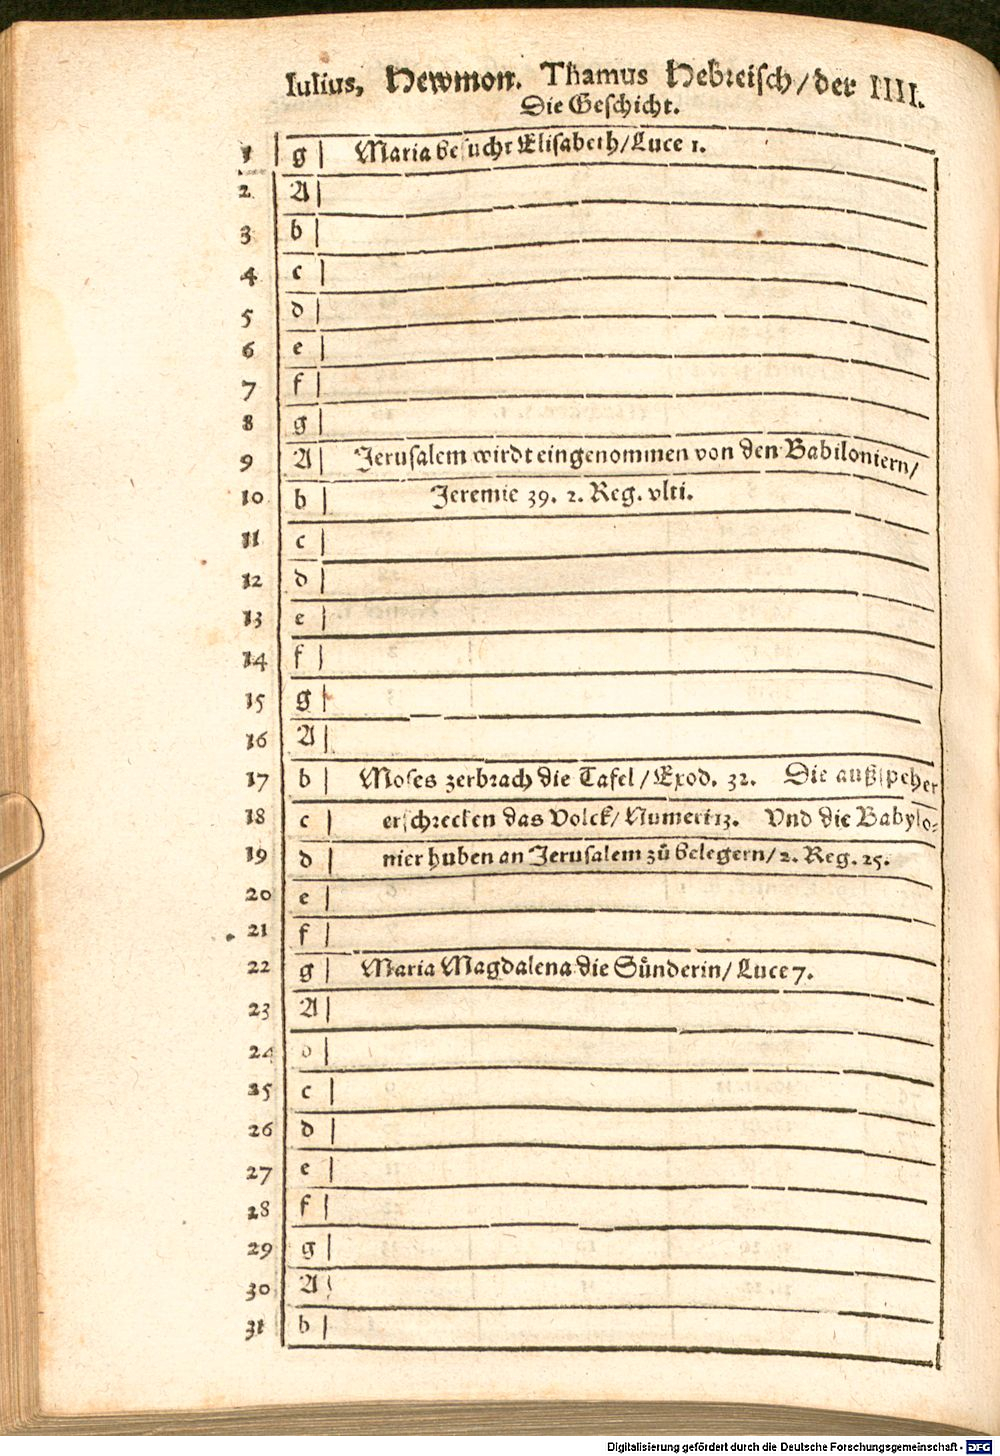 Iulius, Hewmon. Thamus Hebreisch/der IIII.
Die Geschicht.
1 g Maria besucht Elisabeth/Luce 1.
2 A
3 b
4 c
5 d
6 e
7 f
8 g
9 A Jerusalem wirdt eingenommen von den Babiloniern/
10 b Jeremie 39. 2. Reg. vlti.
11 c
12 d
13 e
14 f
15 g
16 A
17 b Moses zerbrach die Tafel/Exod. 32. Die außspeher
18 c erschrecken das Volck/Numeri 13. Vnd die Babylo-
19 d nier huben an Jerusalem zů belegern/2. Reg. 25.
20 e
21 f
22 g Maria Magdalena die Sünderin/Luce 7.
23 A
24 b
25 c
26 d
27 e
28 f
29 g
30 A
31 b
Digitalisierung gefördert durch die Deutsche Forschungsgemeinschaft - DFG